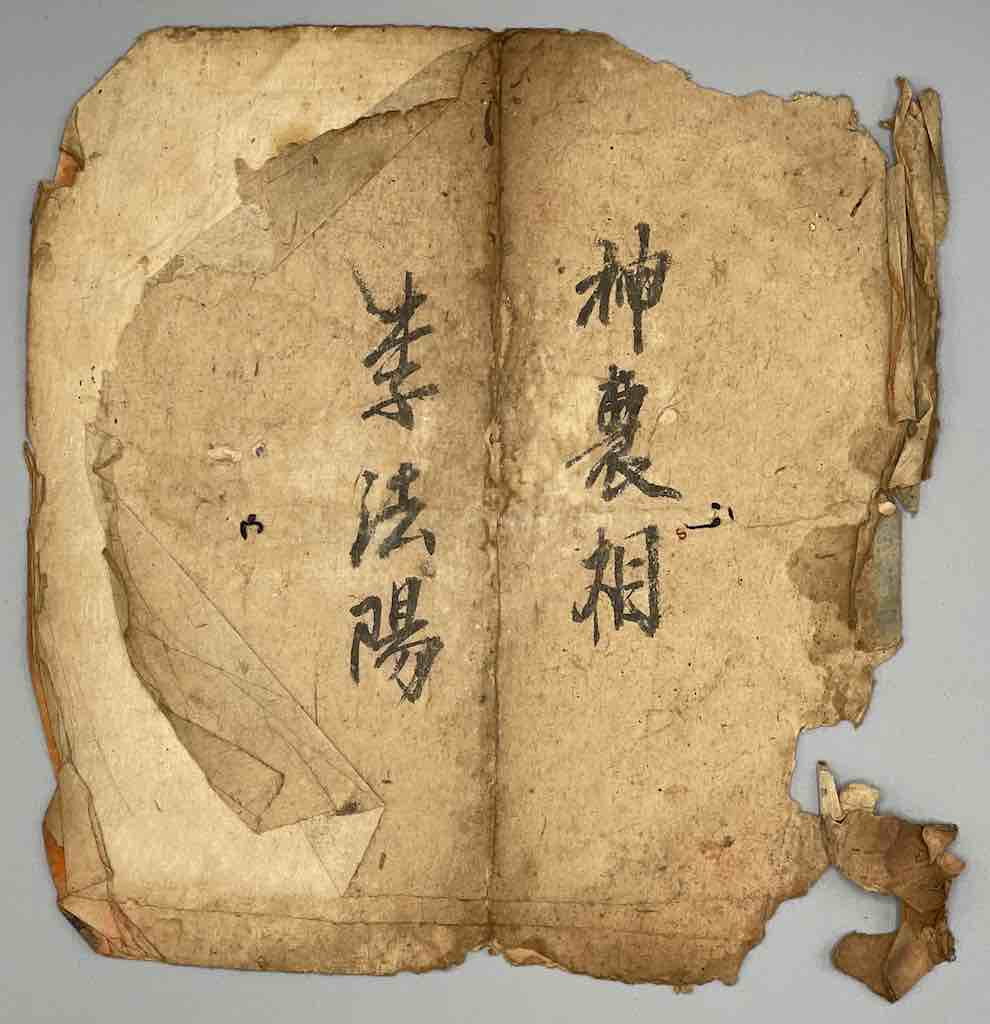 神農相
李法陽